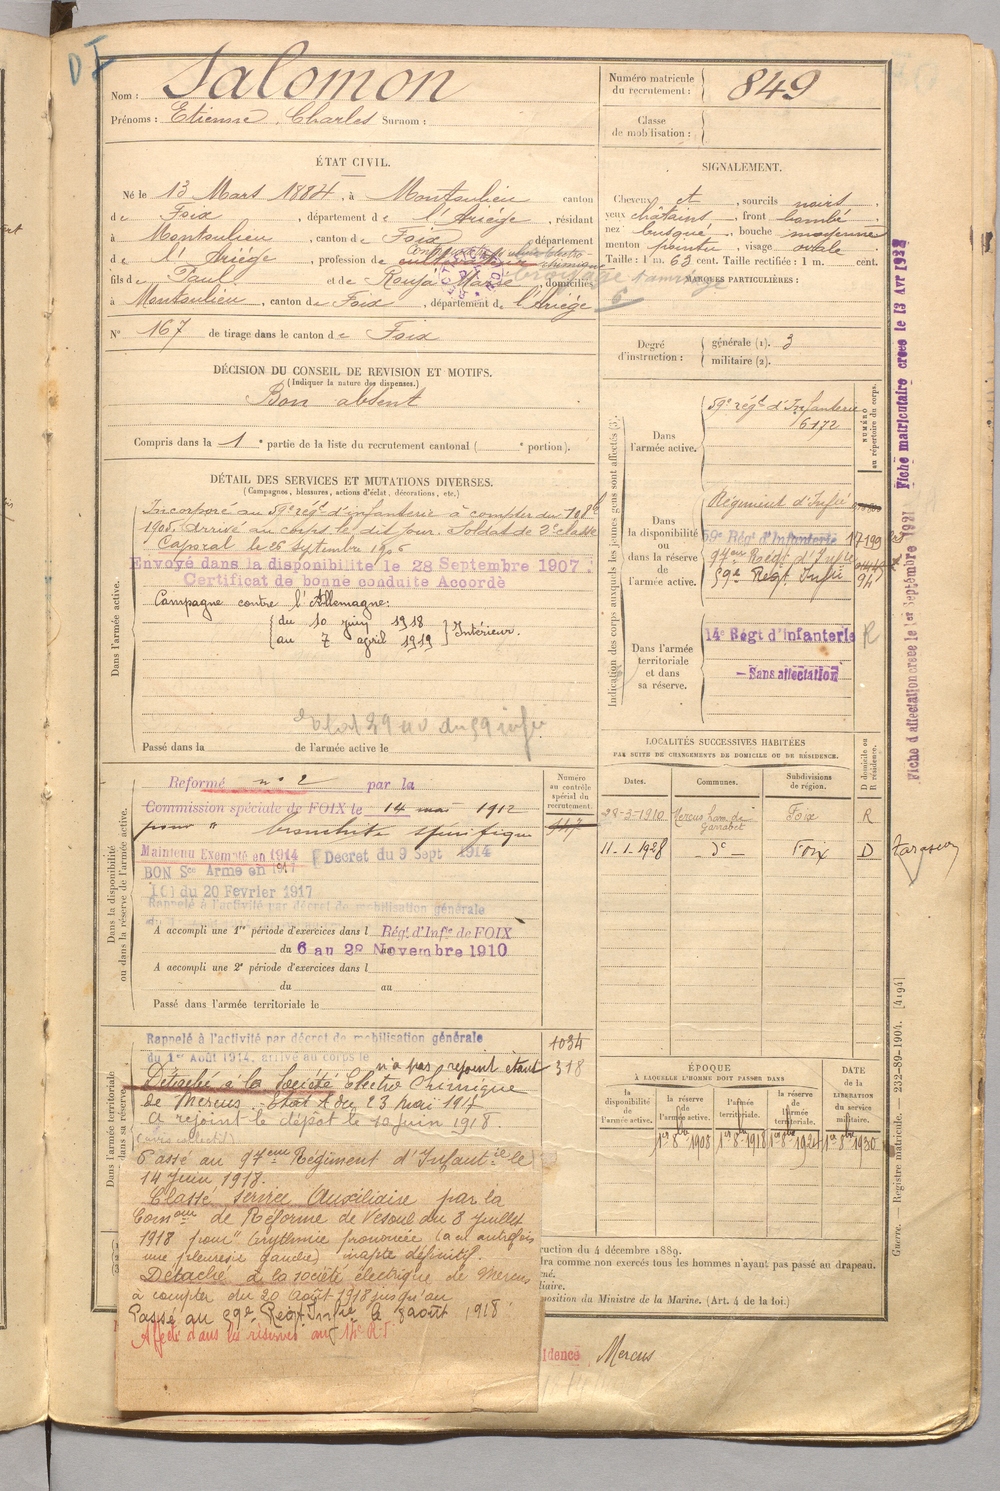 D I
Nom : Salomon
Prénoms : Etienne Charles Surnom :
Numéro matricule du recrutement : 849
Classe de mobilisation :
ÉTAT CIVIL.
Né le 13 Mars 1884, à Montoulieu canton
de Foix, département de l'Ariège, résidant
à Montoulieu, canton de Foix, département
de l'Ariège, profession de cultivateur
fils de Paul et de Rouja Marie, domiciliés
à Montoulieu, canton de Foix, département de l'Ariège
N° 167 de tirage dans le canton de Foix
SIGNALEMENT.
Cheveux et, sourcils noirs,
yeux châtains, front bombé,
nez busqué, bouche moyenne
menton pointu, visage ovale
Taille : 1 m. 63 cent. Taille rectifiée : 1 m. cent.
MARQUES PARTICULIÈRES :
6
Degré d'instruction : générale (1). 3
militaire (2).
DÉCISION DU CONSEIL DE REVISION ET MOTIFS.
(Indiquer la nature des dispenses.)
Bon absent
Compris dans la 1e partie de la liste du recrutement cantonal ( e portion).
DÉTAIL DES SERVICES ET MUTATIONS DIVERSES.
(Campagnes, blessures, actions d'éclat, décorations, etc.)
Dans l'armée active.
Incorporé au 59e régt d'infanterie à compter du 7 8bre
1905, arrivé au corps le dit jour. Soldat de 2e classe
Caporal le 26 septembre 1906
Envoyé dans la disponibilité le 28 Septembre 1907.
Certificat de bonne conduite Accordé
Campagne contre l'Allemagne:
du 10 juin 1918
au 7 april 1919 } Intérieur.
Passé dans la de l'armée active le
Indication des corps auxquels les jeunes gens sont affectés (3).
NUMÉRO au répertoire du corps.
Dans l'armée active.
59e régt d'Infanterie
6172
Dans la disponibilité ou dans la réserve de l'armée active.
Régiment d'Infie
59e Régt d'Infanterie 17199
97eme Régt d'Infie
59e Régt Infie
Dans l'armée territoriale et dans sa réserve.
14e Régt d'Infanterie R
— Sans affectation
Dans la disponibilité ou dans la réserve de l'armée active.
Numéro au contrôle spécial du recrutement.
Reformé n° 2 par la
Commission spéciale de FOIX le 14 mai 1912
pour " bronchite spécifique
Maintenu Exempté en 1914 (Decret du 9 Sept 1914
BON Sce Armé en 1917
du 20 Fevrier 1917
Rappelé à l'activité par décret de mobilisation générale
A accompli une 1re période d'exercices dans l Régt d'Infie de FOIX
du 6 au 28 Novembre 1910
A accompli une 2e période d'exercices dans l
du au
Passé dans l'armée territoriale le
LOCALITÉS SUCCESSIVES HABITÉES
PAR SUITE DE CHANGEMENTS DE DOMICILE OU DE RÉSIDENCE.
Dates. Communes. Subdivisions de région. D domicile ou R résidence.
28-3-1910 Mercus, ham. de Garrabet Foix R
11-1-1928 — do — Foix D Tarascon
Dans l'armée territoriale et dans sa réserve.
Rappelé à l'activité par décret de mobilisation générale 1034
du 1er Août 1914, arrivé au corps le n'a pas rejoint étant 318
Détaché à la Société Electro Chimique
de Mercus. Etat A du 23 mai 1917
A rejoint le dépôt le 10 juin 1918.
(avis collectif)
Passé au 97eme Régiment d'Infantie le
14 Juin 1918.
Classé service Auxiliaire par la
Comon de Réforme de Vesoul du 8 Juillet
1918 pour " (a eu autrefois
une pleurésie gauche) inapte définitif
Détaché à la société électrique de Mercus
à compter du 20 Août 1918 jusqu'au
Passé au 59e Régt Infie le 8 août 1918
Affecté dans les réserves au 14e R.I.
ÉPOQUE
À LAQUELLE L'HOMME DOIT PASSER DANS
DATE de la LIBÉRATION du service militaire.
la disponibilité de l'armée active. la réserve de l'armée active. l'armée territoriale. la réserve de l'armée territoriale.
1er 8bre 1908 1er 8bre 1918 1er 8bre 1924 1er 8bre 1930
ruction du 4 décembre 1889.
dra comme non exercés tous les hommes n'ayant pas passé au drapeau.
né.
liaire.
position du Ministre de la Marine. (Art. 4 de la loi.)
idence Mercus
Fiche matriculaire créée le 13 Avr 1928
Fiche d'affectation créée le 1er Septembre 1921
Guerre. — Registre matricule. — 232-89-1904. [4194]